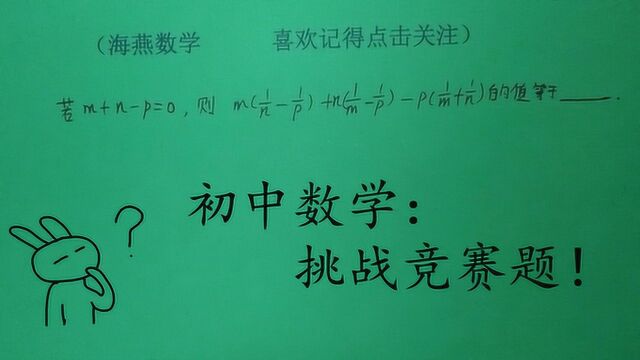 （海燕数学 喜欢记得点击关注）
若 m+n-p=0, 则 m(1/n - 1/p)+n(1/m - 1/p)-p(1/m + 1/n)的值等于____.
?
初中数学：
挑战竞赛题！